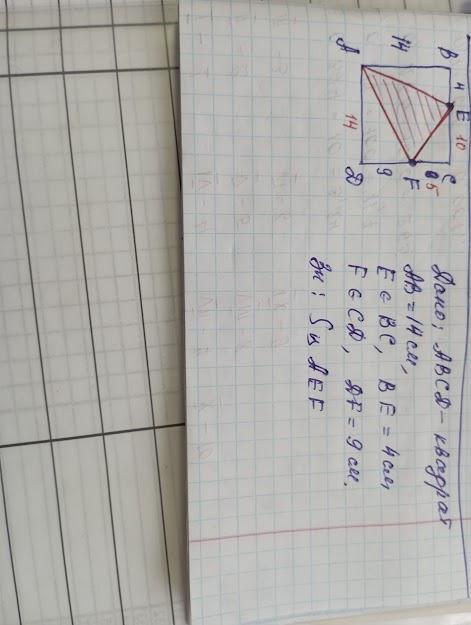 B 4 E 10 C
14
5
F
9
A 14 D
Дано: ABCD - квадрат
AB = 14 см,
E ∈ BC, BE = 4 см,
F ∈ CD, DF = 9 см.
Зн: S
AEF